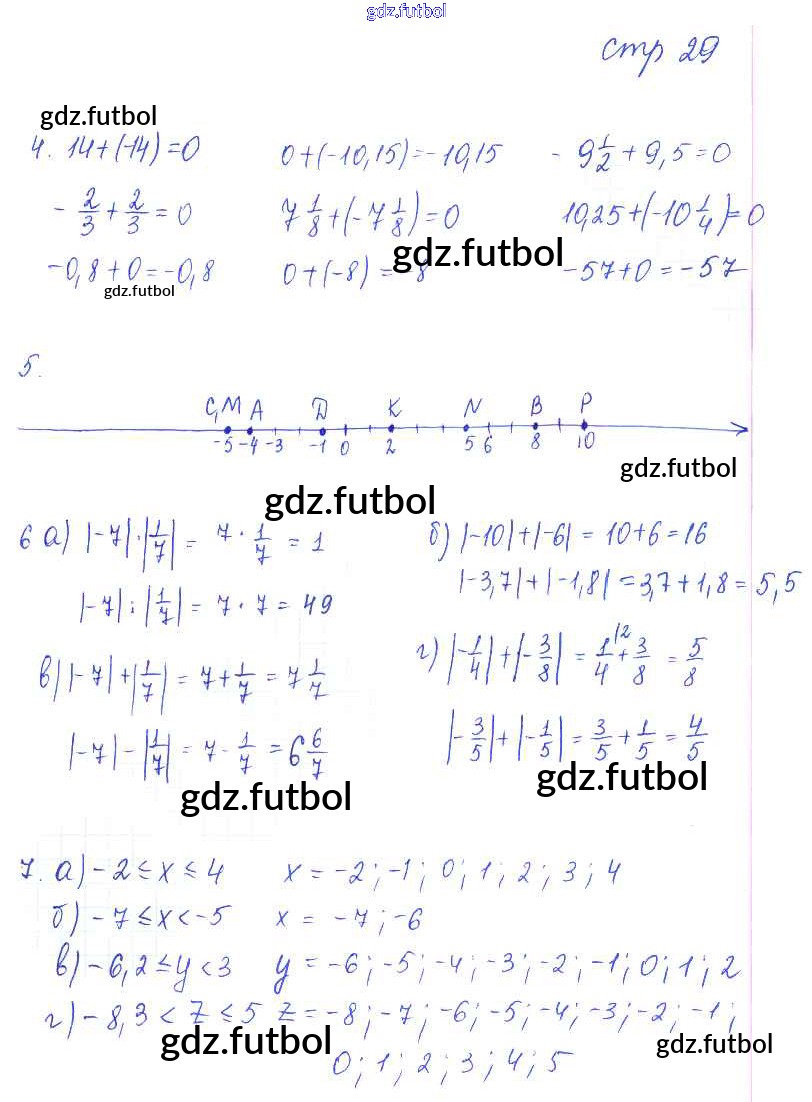 gdz.futbol
стр 29
gdz.futbol
4. 14+(-14)=0 0+(-10,15)=-10,15 -9 1/2 + 9,5=0
-2/3 + 2/3 = 0 7 1/8 + (-7 1/8)=0 10,25+(-10 1/4)=0
gdz.futbol
-0,8+0=-0,8 0+(-8)=-8 -57+0=-57
gdz.futbol
5.
C,M A D K N B P
-5 -4 -3 -1 0 2 5 6 8 10
gdz.futbol
gdz.futbol
6 а) |-7|·|1/7| = 7·1/7 = 1 б) |-10|+|-6| = 10+6=16
|-3,7|+|-1,8|=3,7+1,8=5,5
|-7|:|1/7| = 7·7=49
в) |-7|+|1/7| = 7+1/7=7 1/7 г) |-1/4|+|-3/8| = 1/4 \2 + 3/8 = 5/8
|-7|-|1/7| = 7-1/7 = 6 6/7 |-3/5|+|-1/5| = 3/5+1/5 = 4/5
gdz.futbol
gdz.futbol
7. а) -2 ≤ x ≤ 4 x = -2; -1; 0; 1; 2; 3; 4
б) -7 ≤ x < -5 x = -7; -6
в) -6,2 ≤ y < 3 y = -6; -5; -4; -3; -2; -1; 0; 1; 2
г) -8,3 < z ≤ 5 z = -8; -7; -6; -5; -4; -3; -2; -1;
gdz.futbol
gdz.futbol
0; 1; 2; 3; 4; 5